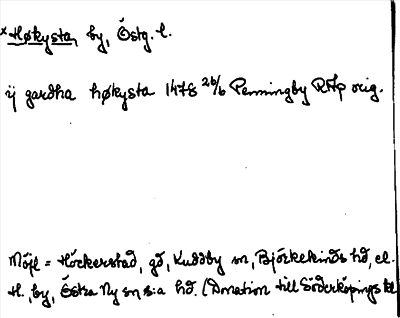 x Høkysta, by, Östg. l.
ij gardha høkysta 1478 26/6 Penningby RAp orig.
Möjl = Höckerstad, gd, Kuddby sn, Björkekinds hd, el.
H., by, Östra Ny sn s:a hd. (Donation till Söderköpings kl